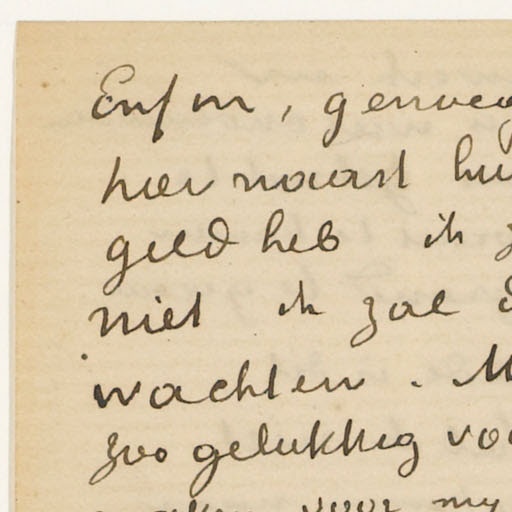 Enfin, genoeg
hiernaast hu
geld heb ik z
niet ik zal d
wachten. M
zoo gelukkig voo
voor my